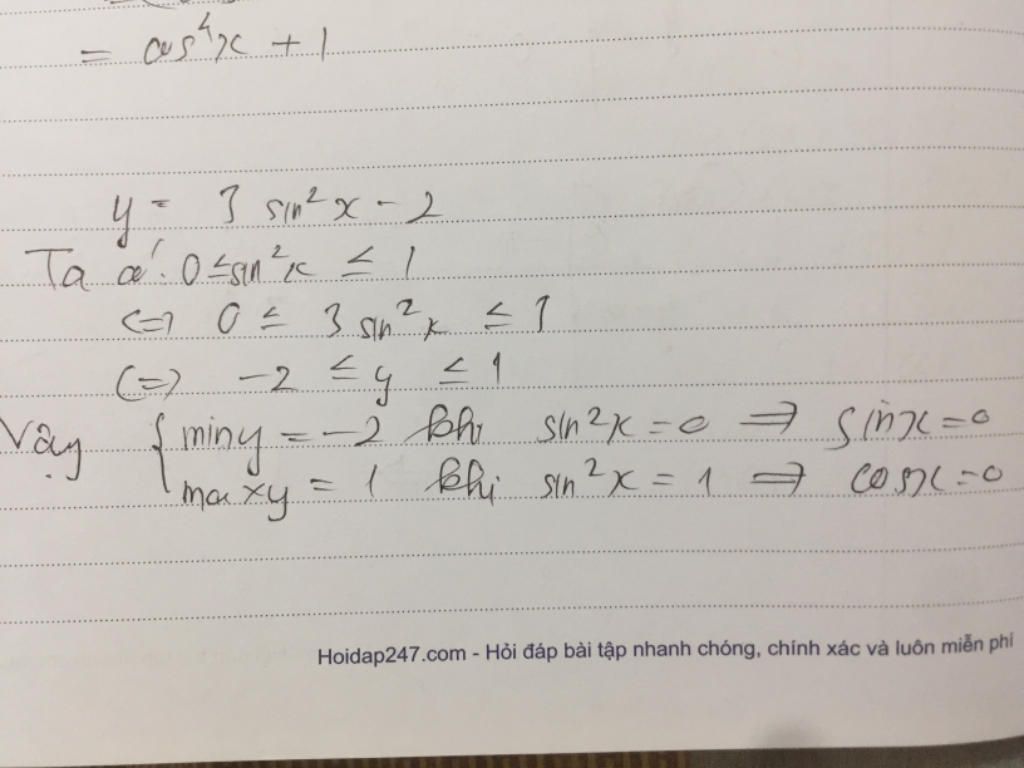 = cos⁴x + 1
y = 3 sin²x - 2
Ta có: 0 ≤ sin²x ≤ 1
<=> 0 ≤ 3 sin²x ≤ 1
<=> -2 ≤ y ≤ 1
Vậy { min y = -2 khi sin²x = 0 => sinx = 0
max y = 1 khi sin²x = 1 => cosx = 0
Hoidap247.com - Hỏi đáp bài tập nhanh chóng, chính xác và luôn miễn phí